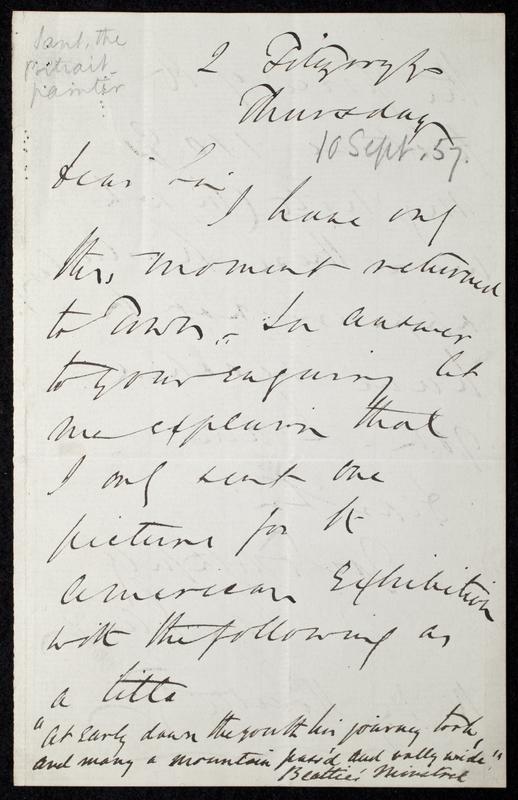 Sant, the
portrait
painter
2 Fitzroy Sq
Thursday
10 Sept. 57.
Dear Sir
I have only
this moment returned
to Town. In answer
to your enquiry let
me explain that
I only sent one
picture for the
American Exhibition
with the following as
a title
"At early dawn the youth his journey took,
and many a mountain pass'd and vally wide."
Beattie's Minstrel